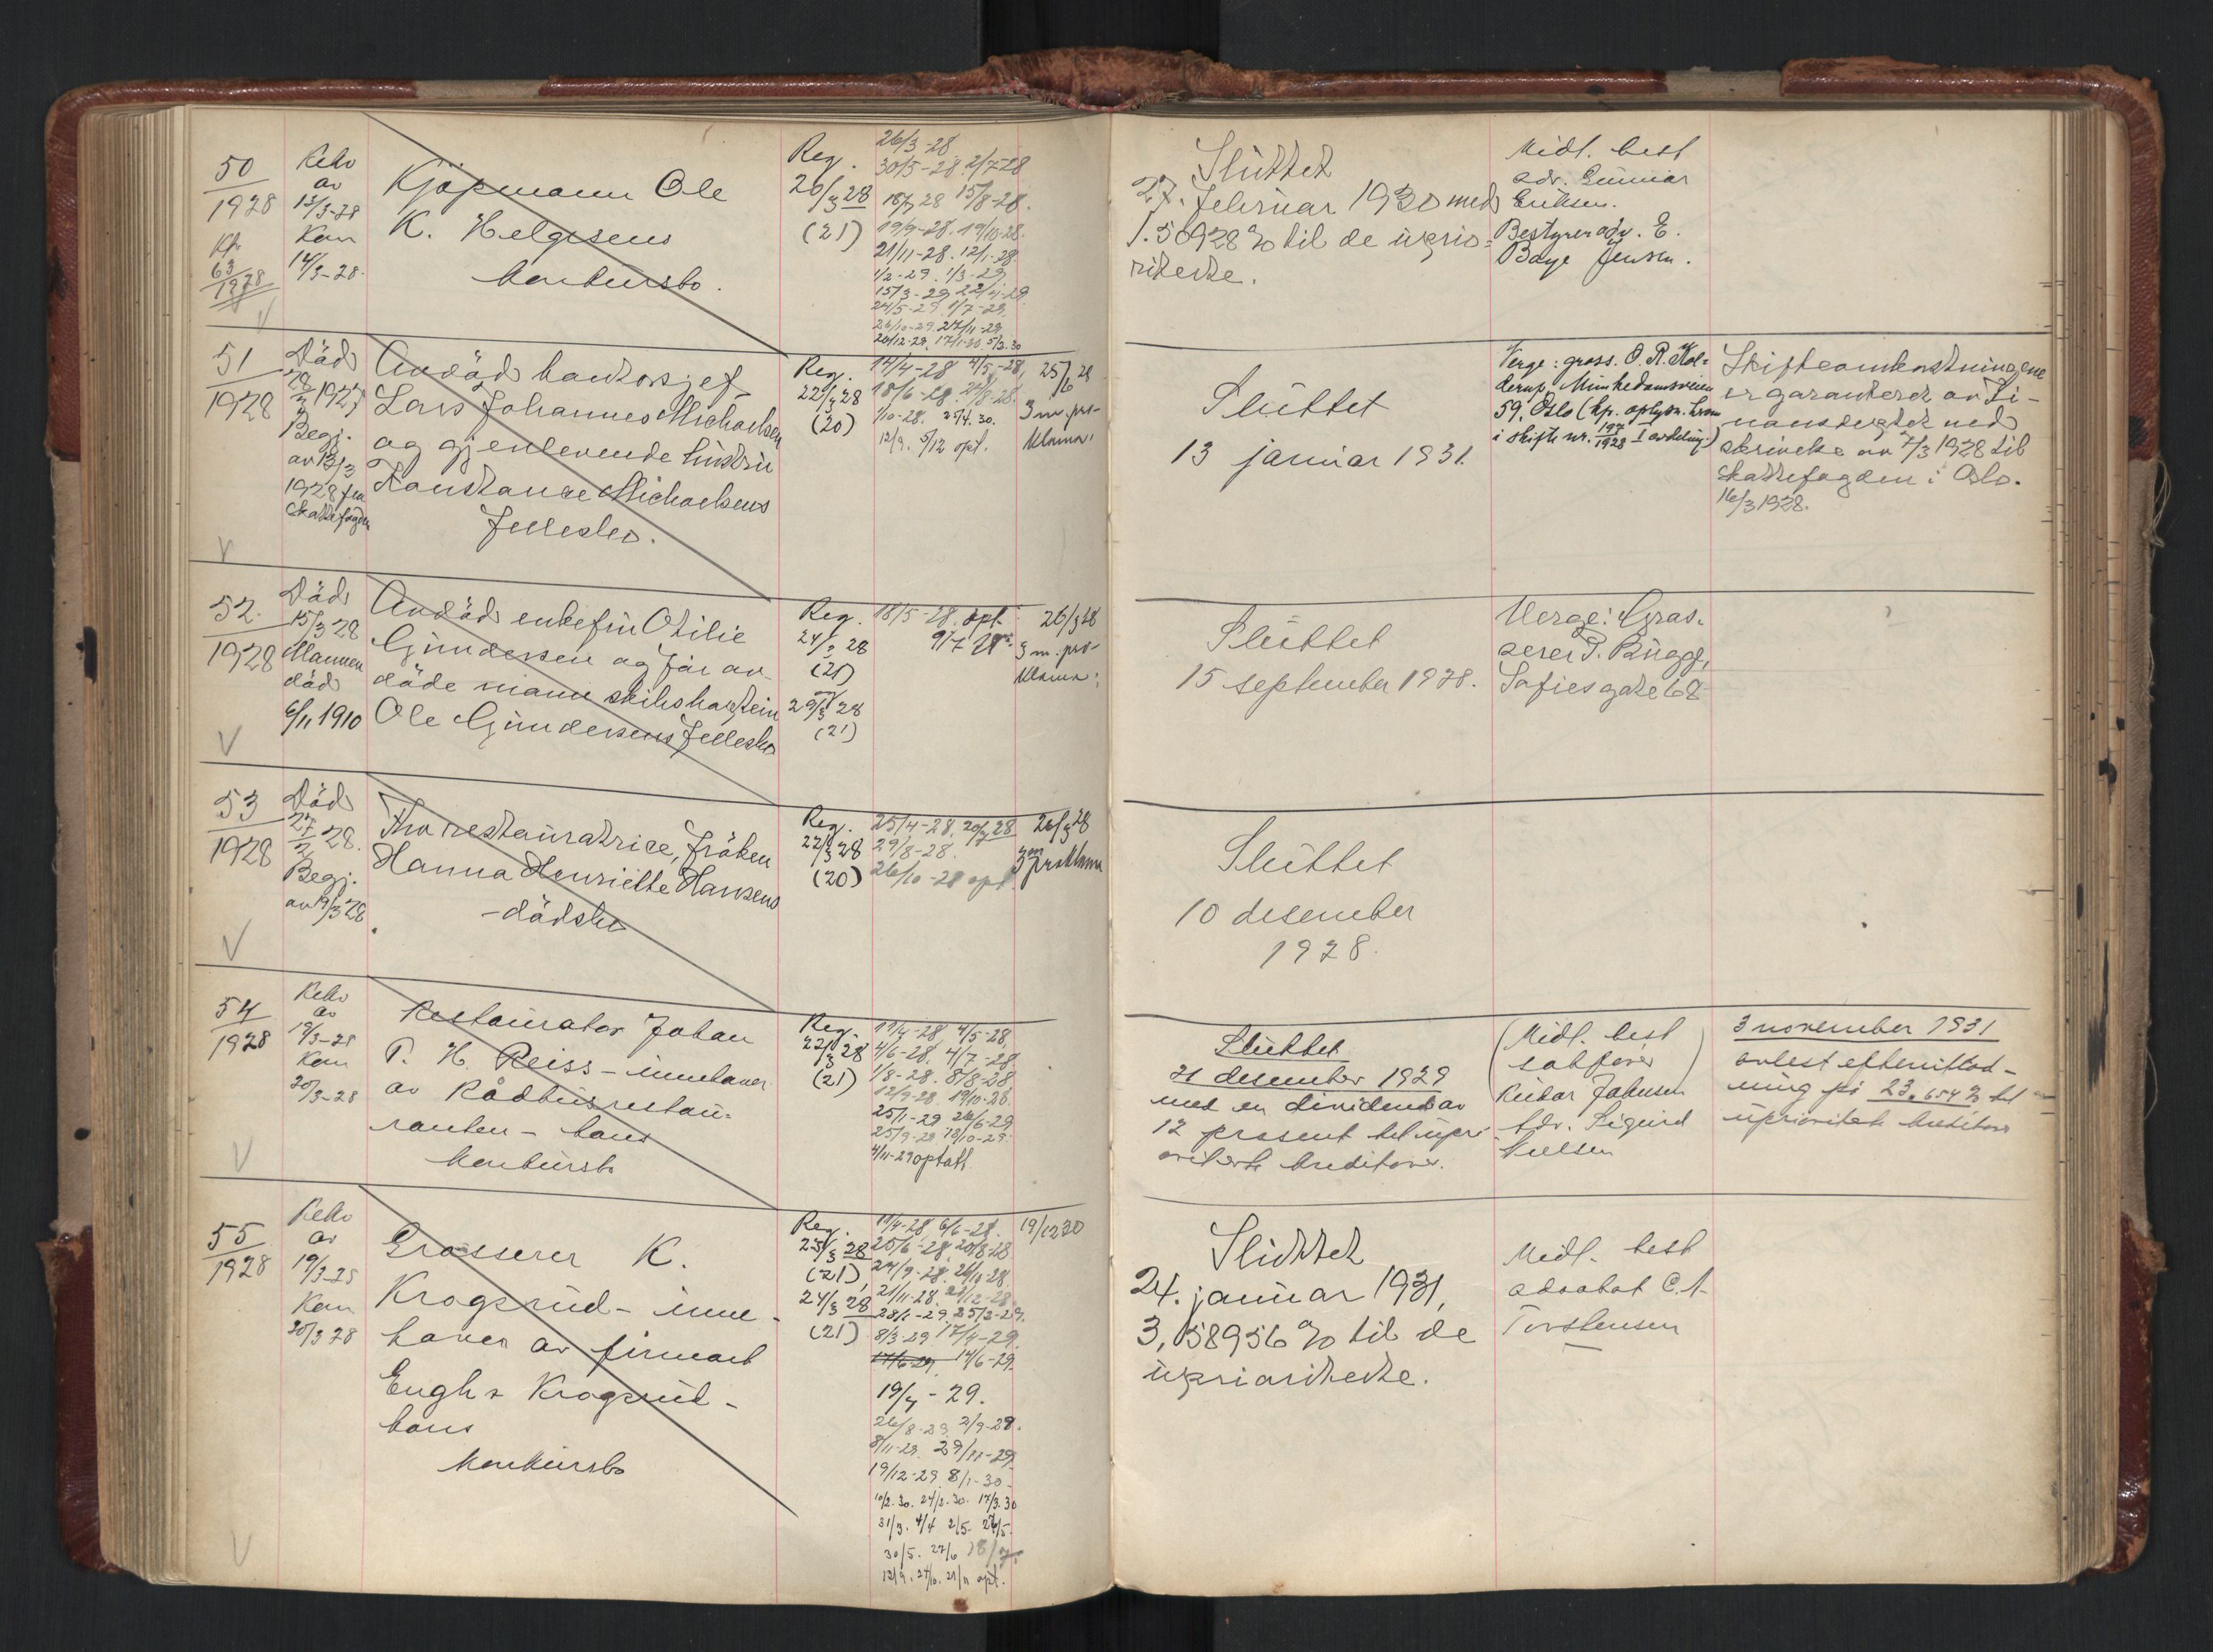 50
1928
Kjöpmann Ole
K. Helgesens
konkursbo.
Reg.
20/3 28
(21)
26/3-28
30/5-28 2/7-28
15/8-28.
19/9-28. 19/10-28.
21/11-28.
1/2-29. 1/3-29
15/3-29 22/4-29.
24/5-29. 1/7-29.
26/10-29. 27/11-29.
Sluttet
27. februar 1930 med
1.50928 % til de uprio-
riterte.
Midl. best
adv. Gunnar
Eriksen.
Bestyrer adv. E.
Baye Jensen.
51
1928
Död
1927
Begj.
av 13/3
1928 fra
skattefogden
Avdöd kontorsjef
Lars Johannes Michaelsen
og gjenlevende hustru
Konstanse Michaelsens
fellesbo.
Reg.
22/3 28
(20)
14/4-28 4/5-28,
18/6-28.
1/10-28. 27/4. 30.
12/9. 5/12 opt.
3 m. pro-
klama.
Sluttet
13 januar 1931.
Verge: gross. O. R. Kol-
derup, Munkedamsveien
59, Oslo (kp. oplysn. herom
i skifte nr. 197/1928 I avdeling.)
Skifteomkostningene
er garantert av Fi-
nansdeptet ved
skrivelse av 7/3 1928 til
skattefogden i Oslo.
16/3 1928.
52.
1928
Död
15/3 28
Mannen
död
6/11 1910
Avdöd enkefru Otilie
Gundersen og för av-
döde mann skibskaptein
Ole Gundersens fellesbo
Reg.
24/3 28
(21)
29/3 28
(21)
18/5-28. opt.
9/7 28
26/3 28
3 m. pro-
klama.
Sluttet
15 september 1928.
Verge: Gros.
serer P. Bugge,
Sofies gate 68
53
1928
Död
28.
Begj.
av 19/3 28
Fhv restauratrice, fröken
Hanna Henriette Hansens
-dödsbo
Reg.
22/3 28
(20)
25/4-28. 20/7 28
29/8-28.
26/10-28 opt
26/3 28
3 m proklama
Sluttet
10 desember
1928.
54
1928
19/3-28
Kon
20/3-28
Restauratör Johan
P. H. Reiss - innehaver
av Rådhusrestau-
ranten - hans
konkursbo
Reg.
22/3 28
(21)
19/4-28 4/5-28,
4/6-28. 4/7-28
1/8-28. 8/8-28,
12/9-28 19/10-28.
25/1-29 26/6-29
25/9-29 18/10-29.
4/11-29 optatt
Sluttet
21 desember 1929
med en dividend av
12 prosent til upri
oriterte kreditorer.
(Midl. best
sakförer
Reidar Johnsen)
Adv. Sigurd
Nielsen
3 november 1931
avlest efterutlod-
ning på 23.654 % til
uprioriterte kreditorer
55
1928
19/3-28
Kon
20/3 28
Grosserer K.
Krogsrud - inne-
haver av firmaet
Engh & Krogsrud -
hans
konkursbo
Reg.
23/3 28
(21)
24/3 28
(21)
19/4-28 6/6-28.
25/6-28 20/8-28
24/9-28. 26/10 28.
21/11-28.
28/1-29. 25/2-29.
8/3-29 17/4-29.
17/6-29 14/6-29.
19/7-29.
26/8-29. 2/9-29.
8/11-29. 29/11-29.
19/12-29. 8/1-30
10/2. 30. 24/2. 30. 17/3. 30
31/3. 4/4 2/5. 26/5.
30/5. 27/6
12/9. 27/10. 21/11 opt.
19/12 30
Sluttet
24. januar 1931,
3,058956 % til de
uprioriterte.
Midl. best
advokat C. A.
Torstensen